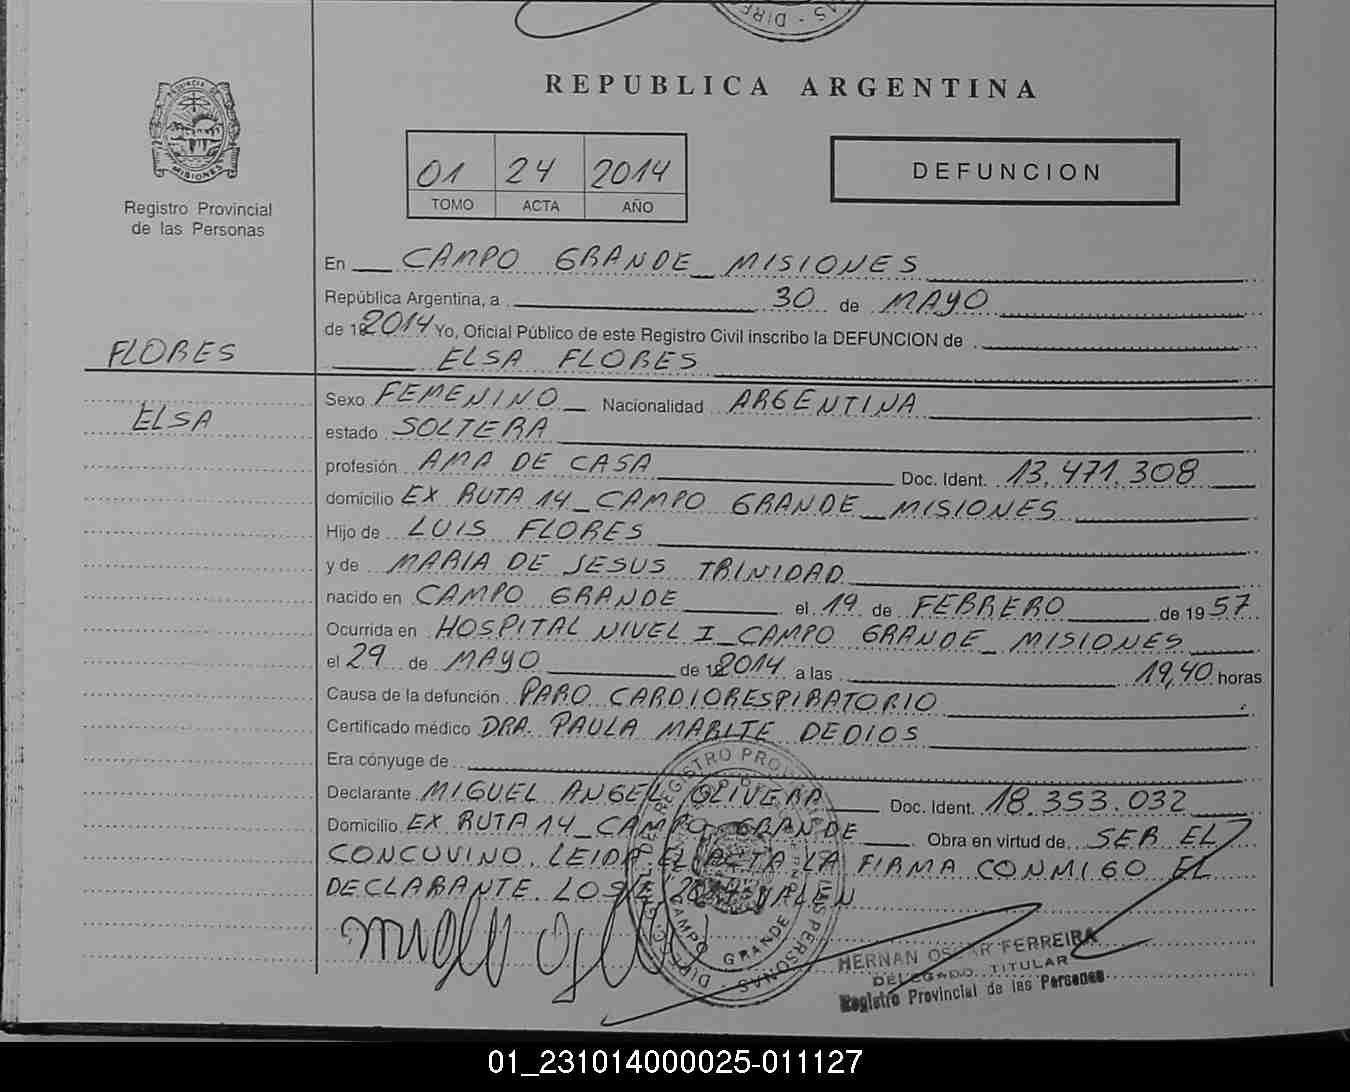 REPUBLICA ARGENTINA
PROVINCIA DE
MISIONES
Registro Provincial
de las Personas
01 24 2014
TOMO ACTA AÑO
DEFUNCION
En CAMPO GRANDE_ MISIONES
República Argentina, a 30 de MAYO
de 2014 Yo, Oficial Público de este Registro Civil inscribo la DEFUNCION de
FLORES
ELSA FLORES
Sexo FEMENINO_ Nacionalidad ARGENTINA
ELSA
estado SOLTERA
profesión AMA DE CASA Doc. Ident. 13.471.308
domicilio EX RUTA 14_CAMPO GRANDE_MISIONES
Hijo de LUIS FLORES
y de MARIA DE JESUS TRINIDAD
nacido en CAMPO GRANDE el 19 de FEBRERO de 1957
Ocurrida en HOSPITAL NIVEL I_CAMPO GRANDE_ MISIONES
el 29 de MAYO de 2014 a las 19,40 horas
Causa de la defunción PARO CARDIORESPIRATORIO
Certificado médico DRA. PAULA MARITE DEDIOS
Era cónyuge de
Declarante MIGUEL ANGEL OLIVERA Doc. Ident. 18.353.032
Domicilio EX RUTA 14_CAMPO GRANDE Obra en virtud de SER EL
CONCUVINO. LEIDA EL ACTA LA FIRMA CONMIGO EL
DECLARANTE. VALEN
CAMPO GRANDE
HERNAN OSCAR FERREIRA
DELEGADO TITULAR
Registro Provincial de las Personas
01_231014000025-011127